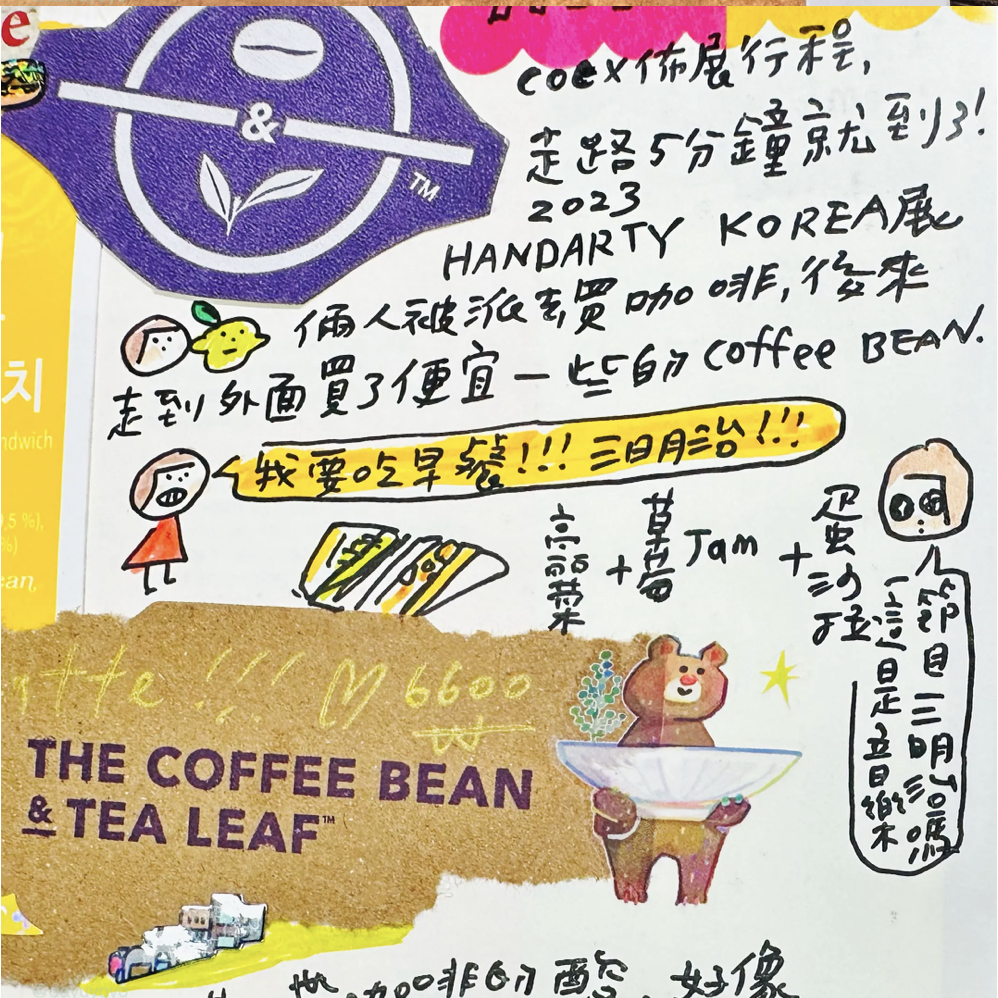 e
&
TM
coex佈展行程,
走路5分鐘就到了!
2023
HANDARTY KOREA展
倆人被派去買咖啡,後來
走到外面買了便宜一些的coffee BEAN.
치
ndwich
,5 %),
%)
ean
我要吃早餐!!! 三明治!!!
高麗菜
+
草莓
Jam
+
蛋沙拉
這是音樂
節目三明治嗎
tte!!! 6600
₩
THE COFFEE BEAN
& TEA LEAF™
咖啡的酸,好像